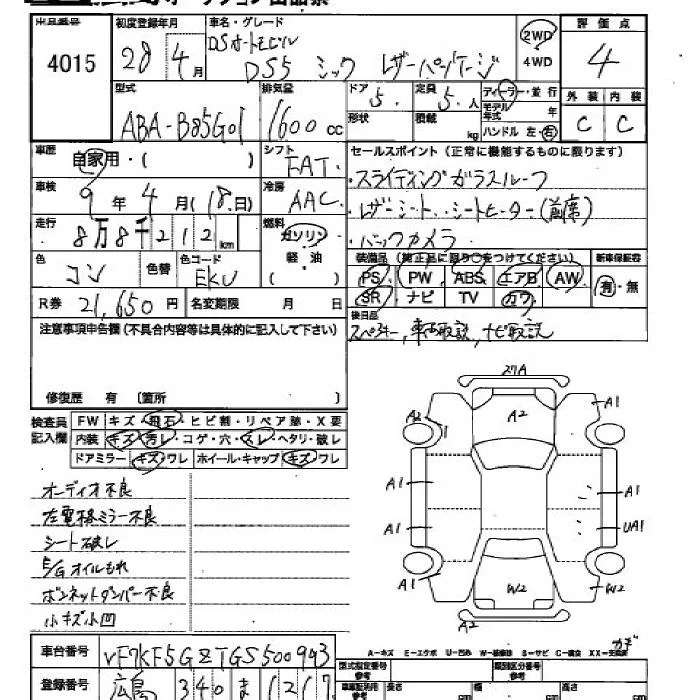 出品番号 4015
初度登録年月 28年4月
車名・グレード DSオートモビル DS5 シック レザーパッケージ
2WD 4WD
評価点 4
型式 ABA-B85G01
排気量 1600cc
ドア 5.
定員 5.人
ディーラー・並行
モデル年式 年
形状 積載 kg
ハンドル 左・右
外装 内装
C C
車歴 自家用・( )
シフト FAT.
車検 9年4月(18日)
冷房 AAC
走行 8万8千212km
燃料 ガソリン 軽油 ( )
色 コン 色替 色コード EKU
R券 21,650円 名変期限 月 日
セールスポイント(正常に機能するものに限ります)
・スライディングガラスルーフ
・レザーシート・・シートヒーター(前席)
・バックカメラ
装備品(純正品に限り○をつけてください) 新車保証書
PS PW ABS エアB AW 有・無
SR ナビ TV カワ
後日品
スペアキー, 車両取説, ナビ取説
注意事項申告欄(不具合内容等は具体的に記入して下さい)
修復歴 有 〔箇所 〕
検査員記入欄
FW キズ・飛石・ヒビ割・リペア跡・X要
内装 キズ・汚レ・コゲ・穴・スレ・ヘタリ・破レ
ドアミラー キズ・ワレ ホイール・キャップ キズ・ワレ
オーディオ不良
左電格ミラー不良
シート破レ
E/Gオイルもれ
ボンネットダンパー不良
小キズ小凹
27A
A2 A2 A1
A1 A1
A1 UA1
A1 W2 W2
A2
A-キズ E-エクボ U-凹み W-補修跡 S-サビ C-腐食 XX-交換済
車台番号 VF7KF5GZTGS500993
登録番号 広島 340 ま 1217
型式指定番号 参考
類別区分番号 参考
車庫証明用 参考 長さ cm 幅 cm 高さ cm